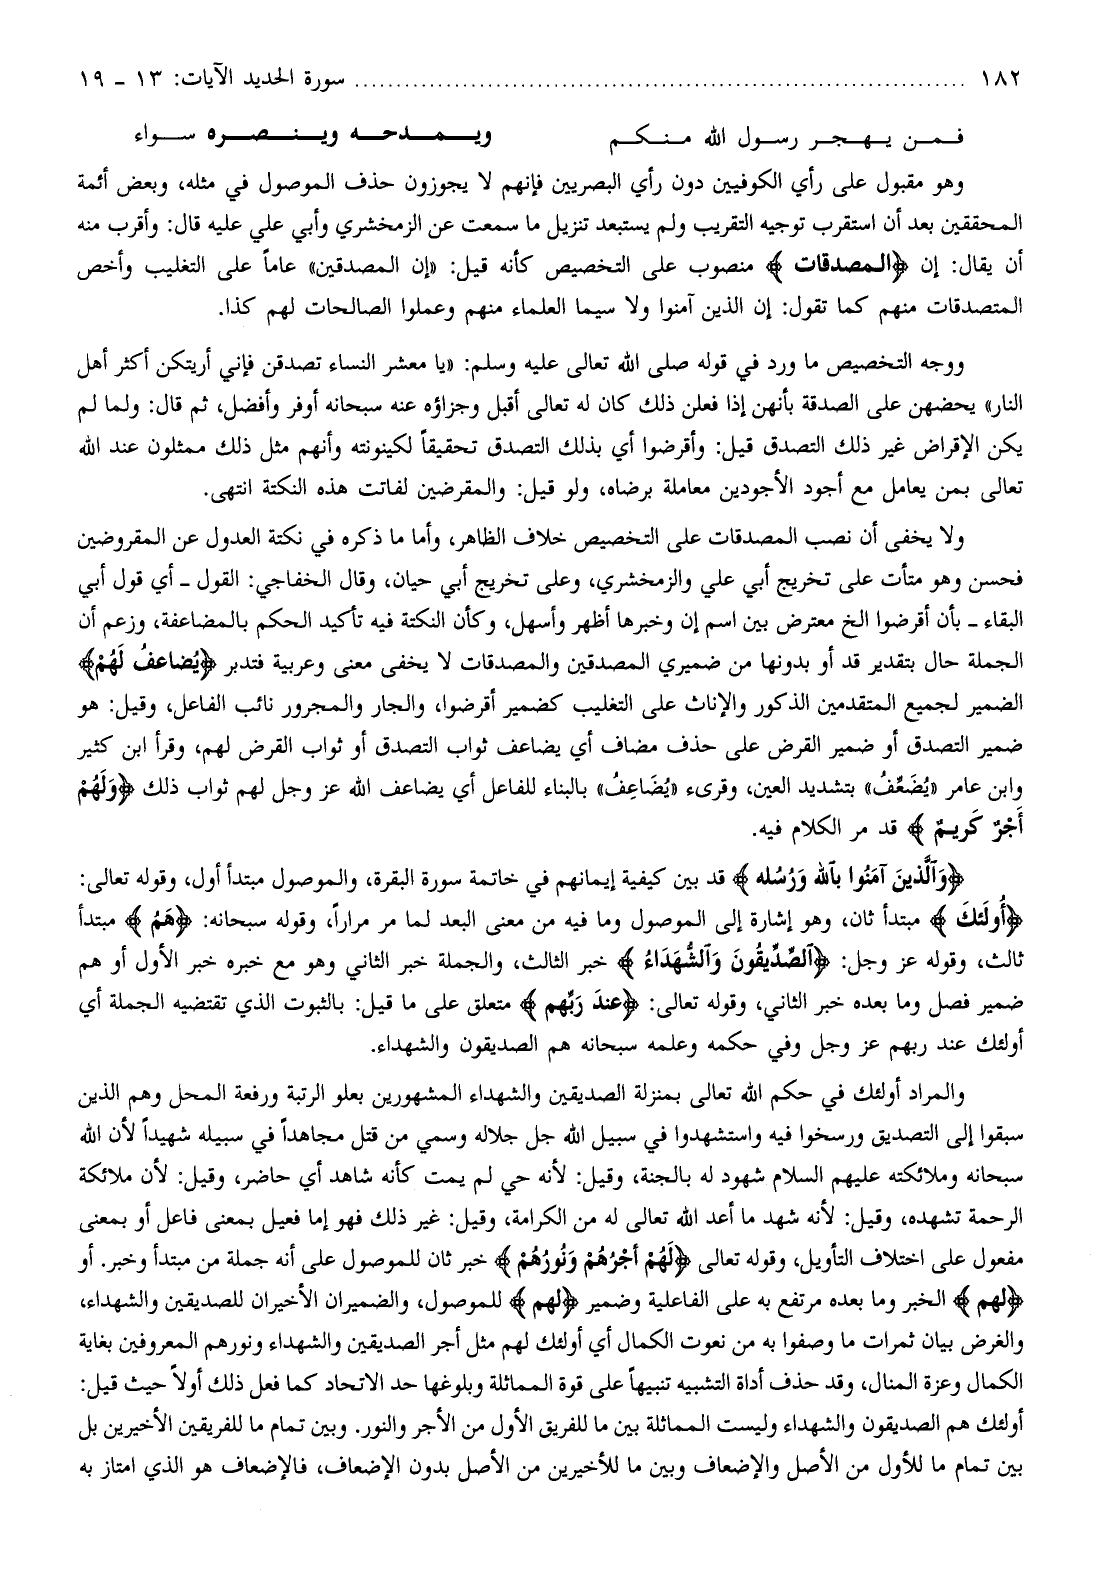 ١٨٢ ........................................ سورة الحديد الآيات: ١٣ ـ ١٩
فـمـن يـهـجـر رسـول الله مـنـكـم ويـمـدحـه ويـنـصـره سـواء
وهو مقبول على رأي الكوفيين دون رأي البصريين فإنهم لا يجوزون حذف الموصول في مثله، وبعض أئمة
المحققين بعد أن استقرب توجيه التقريب ولم يستبعد تنزيل ما سمعت عن الزمخشري وأبي علي عليه قال: وأقرب منه
أن يقال: إن ﴿المصدقات﴾ منصوب على التخصيص كأنه قيل: «إن المصدقين» عاماً على التغليب وأخص
المتصدقات منهم كما تقول: إن الذين آمنوا ولا سيما العلماء منهم وعملوا الصالحات لهم كذا.
ووجه التخصيص ما ورد في قوله صلى الله تعالى عليه وسلم: «يا معشر النساء تصدقن فإني أريتكن أكثر أهل
النار» يحضهن على الصدقة بأنهن إذا فعلن ذلك كان له تعالى أقبل وجزاؤه عنه سبحانه أوفر وأفضل، ثم قال: ولما لم
يكن الإقراض غير ذلك التصدق قيل: وأقرضوا أي بذلك التصدق تحقيقاً لكينونته وأنهم مثل ذلك ممثلون عند الله
تعالى بمن يعامل مع أجود الأجودين معاملة برضاه، ولو قيل: والمقرضين لفاتت هذه النكتة انتهى.
ولا يخفى أن نصب المصدقات على التخصيص خلاف الظاهر، وأما ما ذكره في نكتة العدول عن المقروضين
فحسن وهو متأت على تخريج أبي علي والزمخشري، وعلى تخريج أبي حيان، وقال الخفاجي: القول ـ أي قول أبي
البقاء ـ بأن أقرضوا الخ معترض بين اسم إن وخبرها أظهر وأسهل، وكأن النكتة فيه تأكيد الحكم بالمضاعفة، وزعم أن
الجملة حال بتقدير قد أو بدونها من ضميري المصدقين والمصدقات لا يخفى معنى وعربية فتدبر ﴿يُضاعفُ لَهُمْ﴾
الضمير لجميع المتقدمين الذكور والإناث على التغليب كضمير أقرضوا، والجار والمجرور نائب الفاعل، وقيل: هو
ضمير التصدق أو ضمير القرض على حذف مضاف أي يضاعف ثواب التصدق أو ثواب القرض لهم، وقرأ ابن كثير
وابن عامر «يُضَعَّفُ» بتشديد العين، وقرىء «يُضَاعِفُ» بالبناء للفاعل أي يضاعف الله عز وجل لهم ثواب ذلك ﴿وَلَهُمْ
أَجْرٌ كَريمٌ﴾ قد مر الكلام فيه.
﴿وَٱلَّذينَ آمَنُوا بٱلله وَرُسُله﴾ قد بين كيفية إيمانهم في خاتمة سورة البقرة، والموصول مبتدأ أول، وقوله تعالى:
﴿أُولَئكَ﴾ مبتدأ ثان، وهو إشارة إلى الموصول وما فيه من معنى البعد لما مر مراراً، وقوله سبحانه: ﴿هَمُ﴾ مبتدأ
ثالث، وقوله عز وجل: ﴿ٱلصِّدِّيقُونَ وَٱلشُّهَدَاءُ﴾ خبر الثالث، والجملة خبر الثاني وهو مع خبره خبر الأول أو هم
ضمير فصل وما بعده خبر الثاني، وقوله تعالى: ﴿عندَ رَبِّهم﴾ متعلق على ما قيل: بالثبوت الذي تقتضيه الجملة أي
أولئك عند ربهم عز وجل وفي حكمه وعلمه سبحانه هم الصديقون والشهداء.
والمراد أولئك في حكم الله تعالى بمنزلة الصديقين والشهداء المشهورين بعلو الرتبة ورفعة المحل وهم الذين
سبقوا إلى التصديق ورسخوا فيه واستشهدوا في سبيل الله جل جلاله وسمي من قتل مجاهداً في سبيله شهيداً لأن الله
سبحانه وملائكته عليهم السلام شهود له بالجنة، وقيل: لأنه حي لم يمت كأنه شاهد أي حاضر، وقيل: لأن ملائكة
الرحمة تشهده، وقيل: لأنه شهد ما أعد الله تعالى له من الكرامة، وقيل: غير ذلك فهو إما فعيل بمعنى فاعل أو بمعنى
مفعول على اختلاف التأويل، وقوله تعالى ﴿لَهُمْ أَجْرُهُمْ وَنُورُهُمْ﴾ خبر ثان للموصول على أنه جملة من مبتدأ وخبر. أو
﴿لهم﴾ الخبر وما بعده مرتفع به على الفاعلية وضمير ﴿لهم﴾ للموصول، والضميران الأخيران للصديقين والشهداء،
والغرض بيان ثمرات ما وصفوا به من نعوت الكمال أي أولئك لهم مثل أجر الصديقين والشهداء ونورهم المعروفين بغاية
الكمال وعزة المنال، وقد حذف أداة التشبيه تنبيهاً على قوة المماثلة وبلوغها حد الاتحاد كما فعل ذلك أولاً حيث قيل:
أولئك هم الصديقون والشهداء وليست المماثلة بين ما للفريق الأول من الأجر والنور. وبين تمام ما للفريقين الأخيرين بل
بين تمام ما للأول من الأصل والإضعاف وبين ما للأخيرين من الأصل بدون الإضعاف، فالإضعاف هو الذي امتاز به